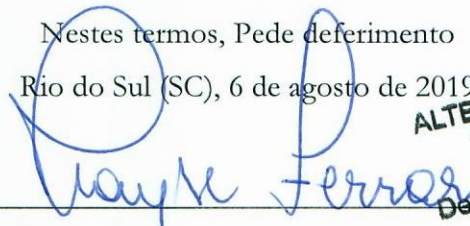 Nestes termos, Pede deferimento
Rio do Sul (SC), 6 de agosto de 2019
ALTE
Ferrar
De